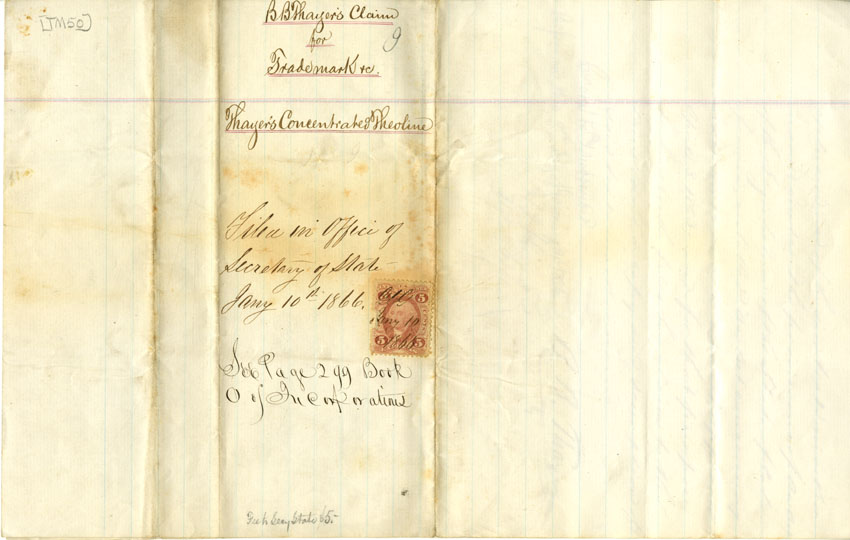 [TM50]
B B Thayer's Claim
9
for
Trademark &c.
Thayer's Concentrated Theoline
Filed in Office of
Secretary of State
Jany 10th 1866.
5
Jany 10
1866
5 5
See Page 299 Book
O of Incorporations
Fee to Secy State $5.-